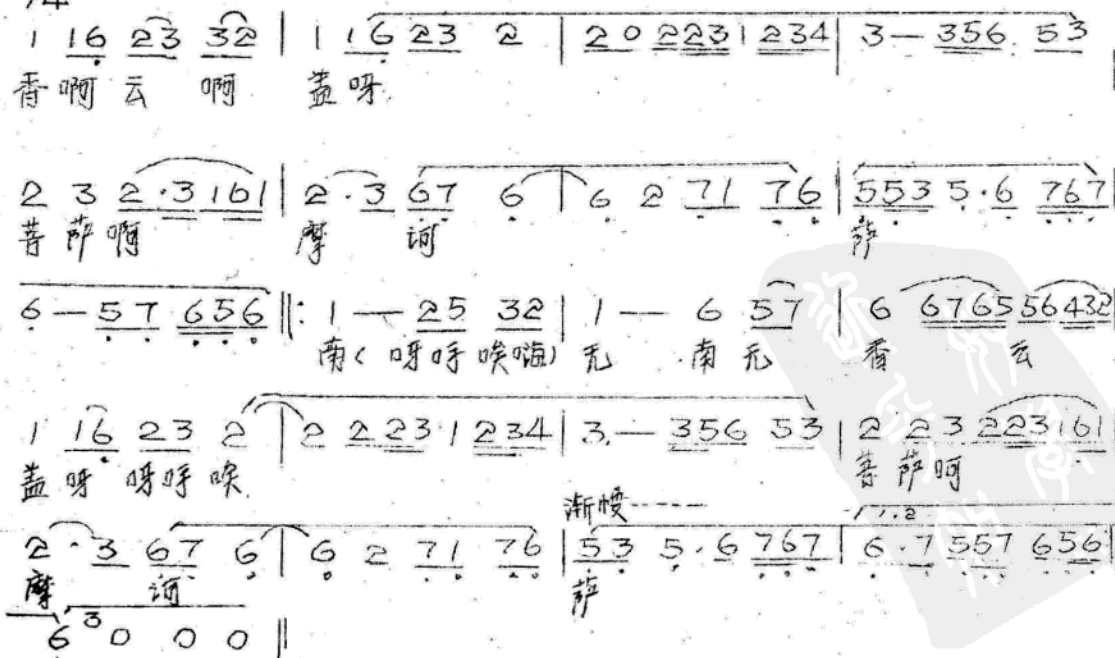 1 16 23 32 | 1 16 23 2 | 20 2231 234 | 3— 356 53 |
香啊云 啊 盖呀
2 3 2·3 161 | 2·3 67 6 | 6 2 71 76 | 553 5·6 767
菩萨啊 摩 诃 萨
6— 57 656 ‖: 1— 25 32 | 1— 6 57 | 6 6765 56432 |
南(呀呼唉嗨)无 南无 香 云
1 16 23 2 | 2 2 23 1 234 | 3.— 356 53 | 2 2 3 223 161 |
盖呀 呀呼唉 菩萨呵
渐慢
2·3 67 6 | 6 2 71 76 | 53 5·6 767 | 6·7 557 656 |
摩 诃 萨
6 3 0 0 0 ‖